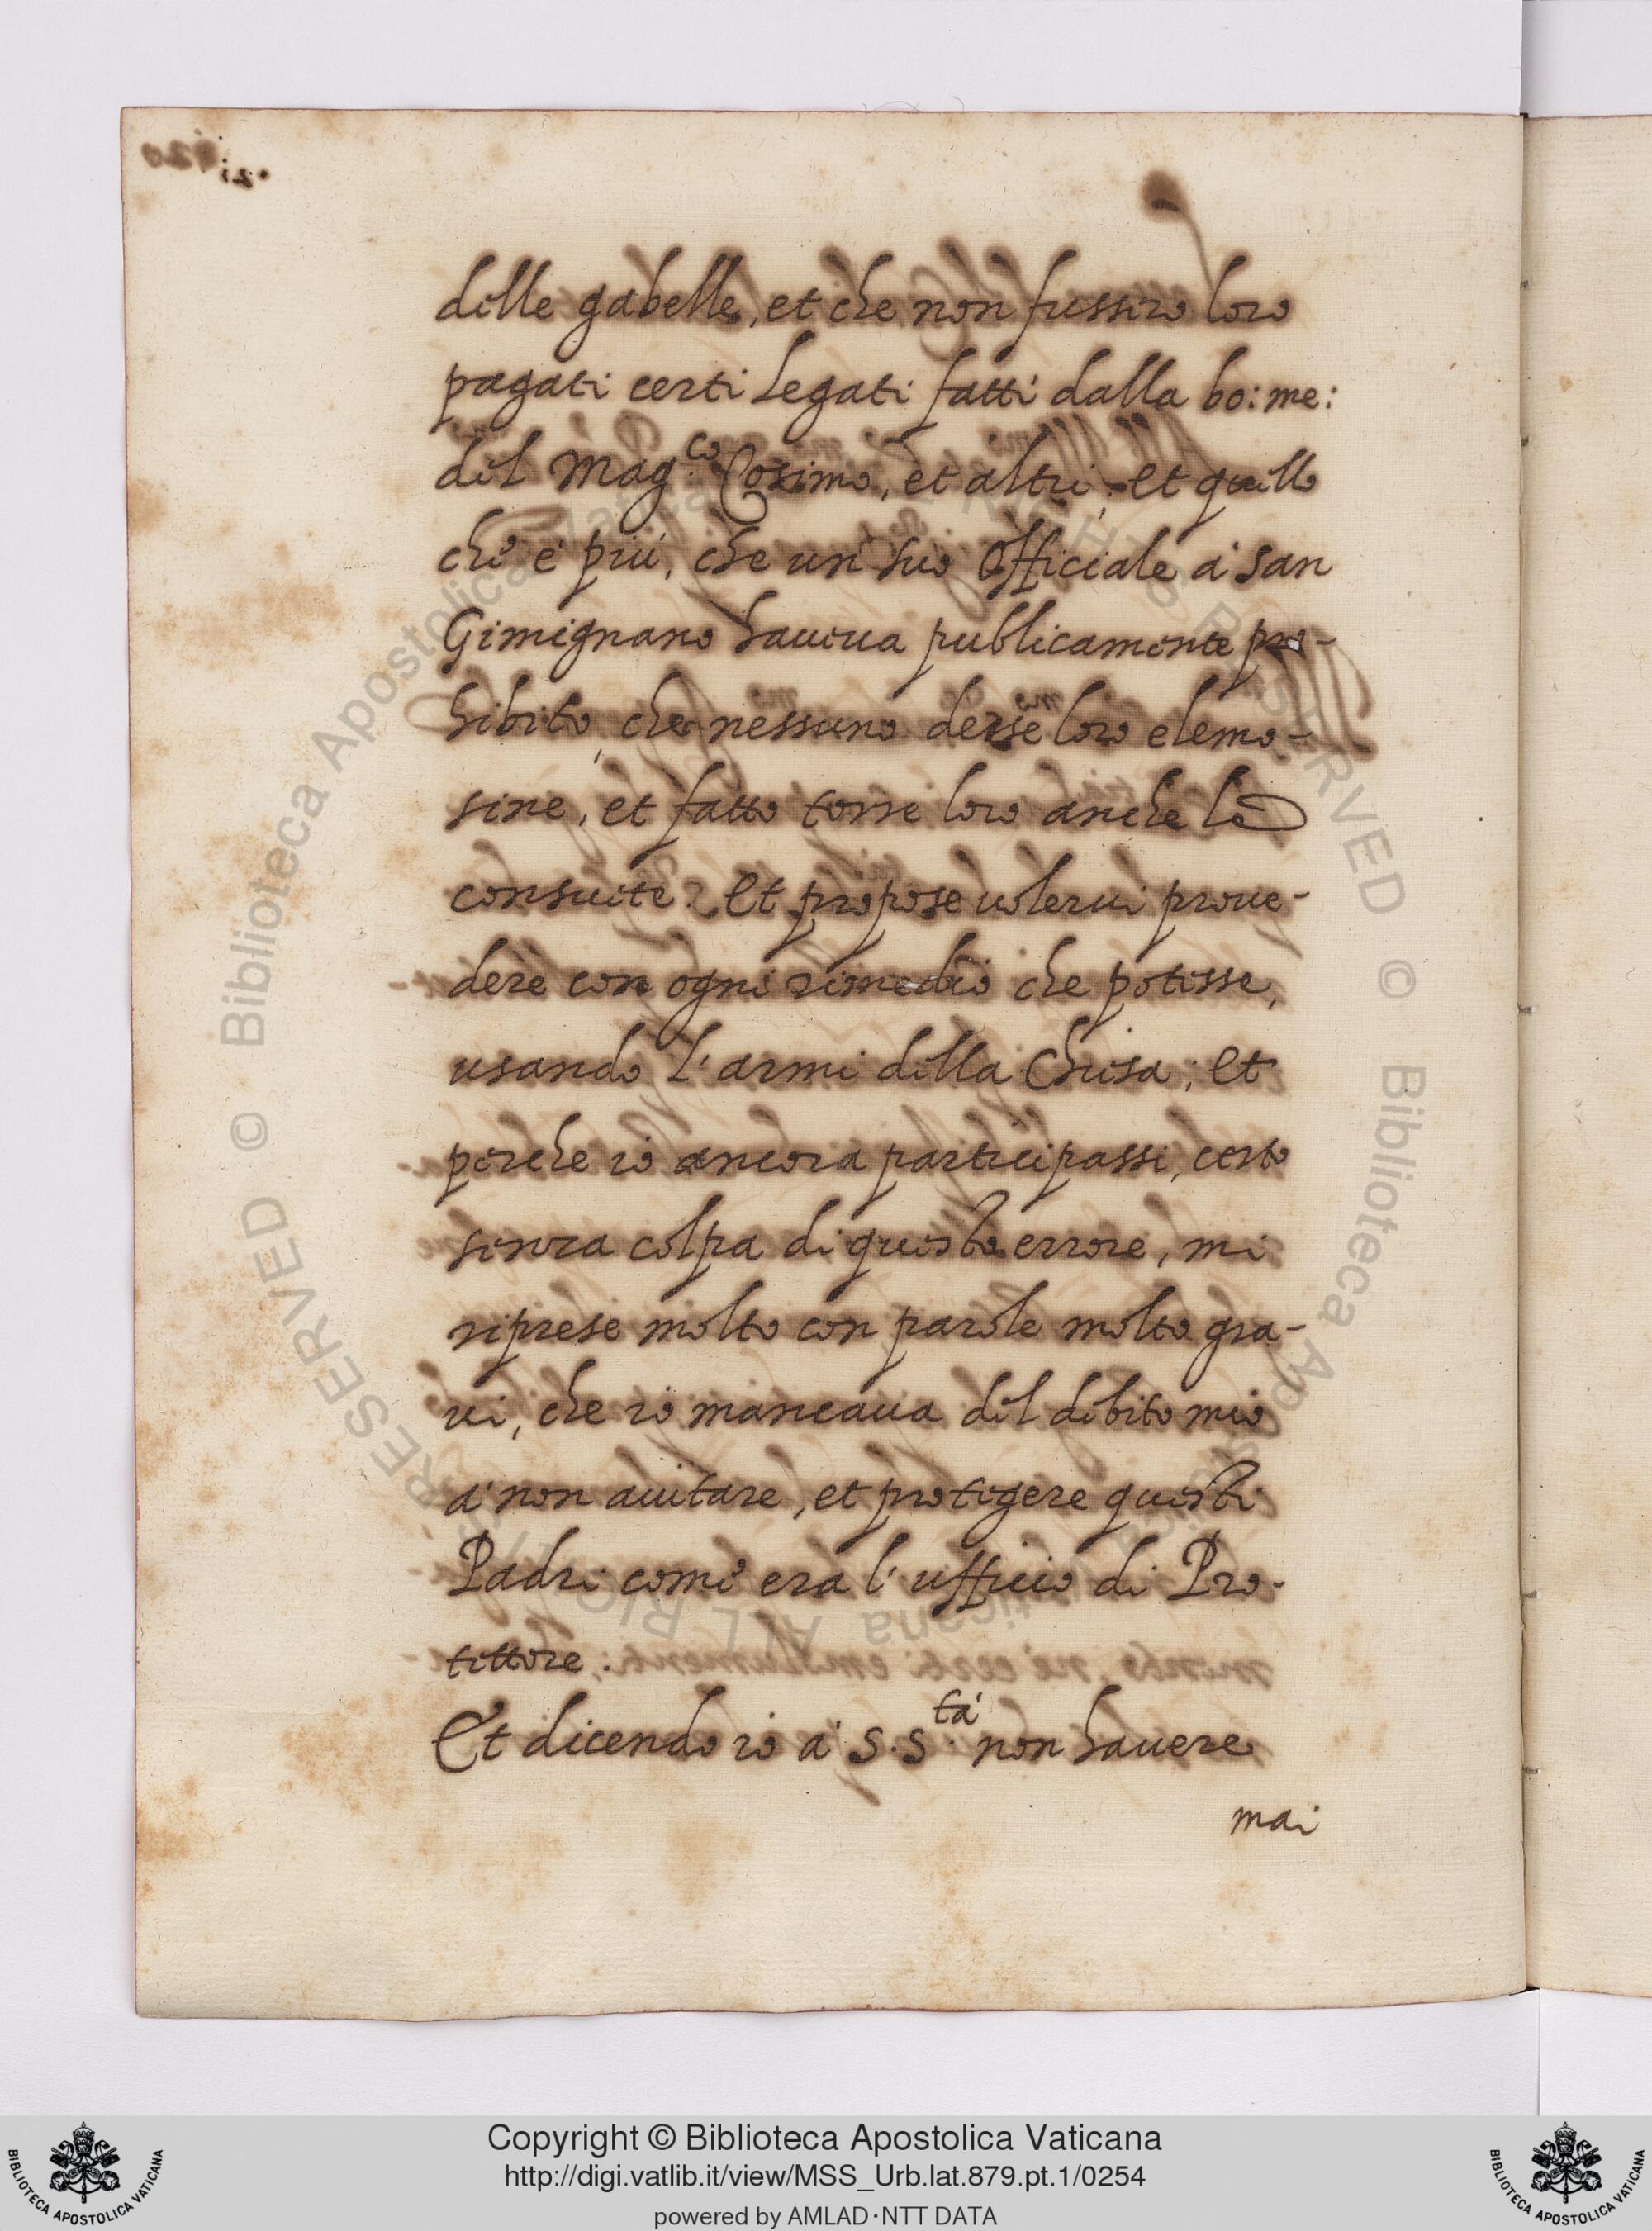 delle gabelle, et che non fussero loro
pagati certi Legati fatti dalla bo: me:
del Mag.co Cosimo, et altri, et quello
che é piú, che un suo Officiale á San
Gimignano haueua publicamente pro-
hibito, che nessuno desse loro elemo-
sine, et fatto torre loro anche le
consuete. Et propose volerui proue-
dere con ogni rimedio che potesse,
usando l'armi della Chiesa; et
perche io ancora participassi, certo
senza colpa di questo errore, mi
riprese molto con parole molto gra-
ui, che io mancaua del debito mio
á non aiutare, et protegere questi
Padri come era l'ufficio di Pro-
tettore.
Et dicendo io á S. S.tá non hauere
mai
Copyright © Biblioteca Apostolica Vaticana
http://digi.vatlib.it/view/MSS_Urb.lat.879.pt.1/0254
powered by AMLAD·NTT DATA
BIBLIOTECA APOSTOLICA VATICANA
BIBLIOTECA APOSTOLICA VATICANA
© Biblioteca Apostolica Vaticana ALL RIGHTS RESERVED